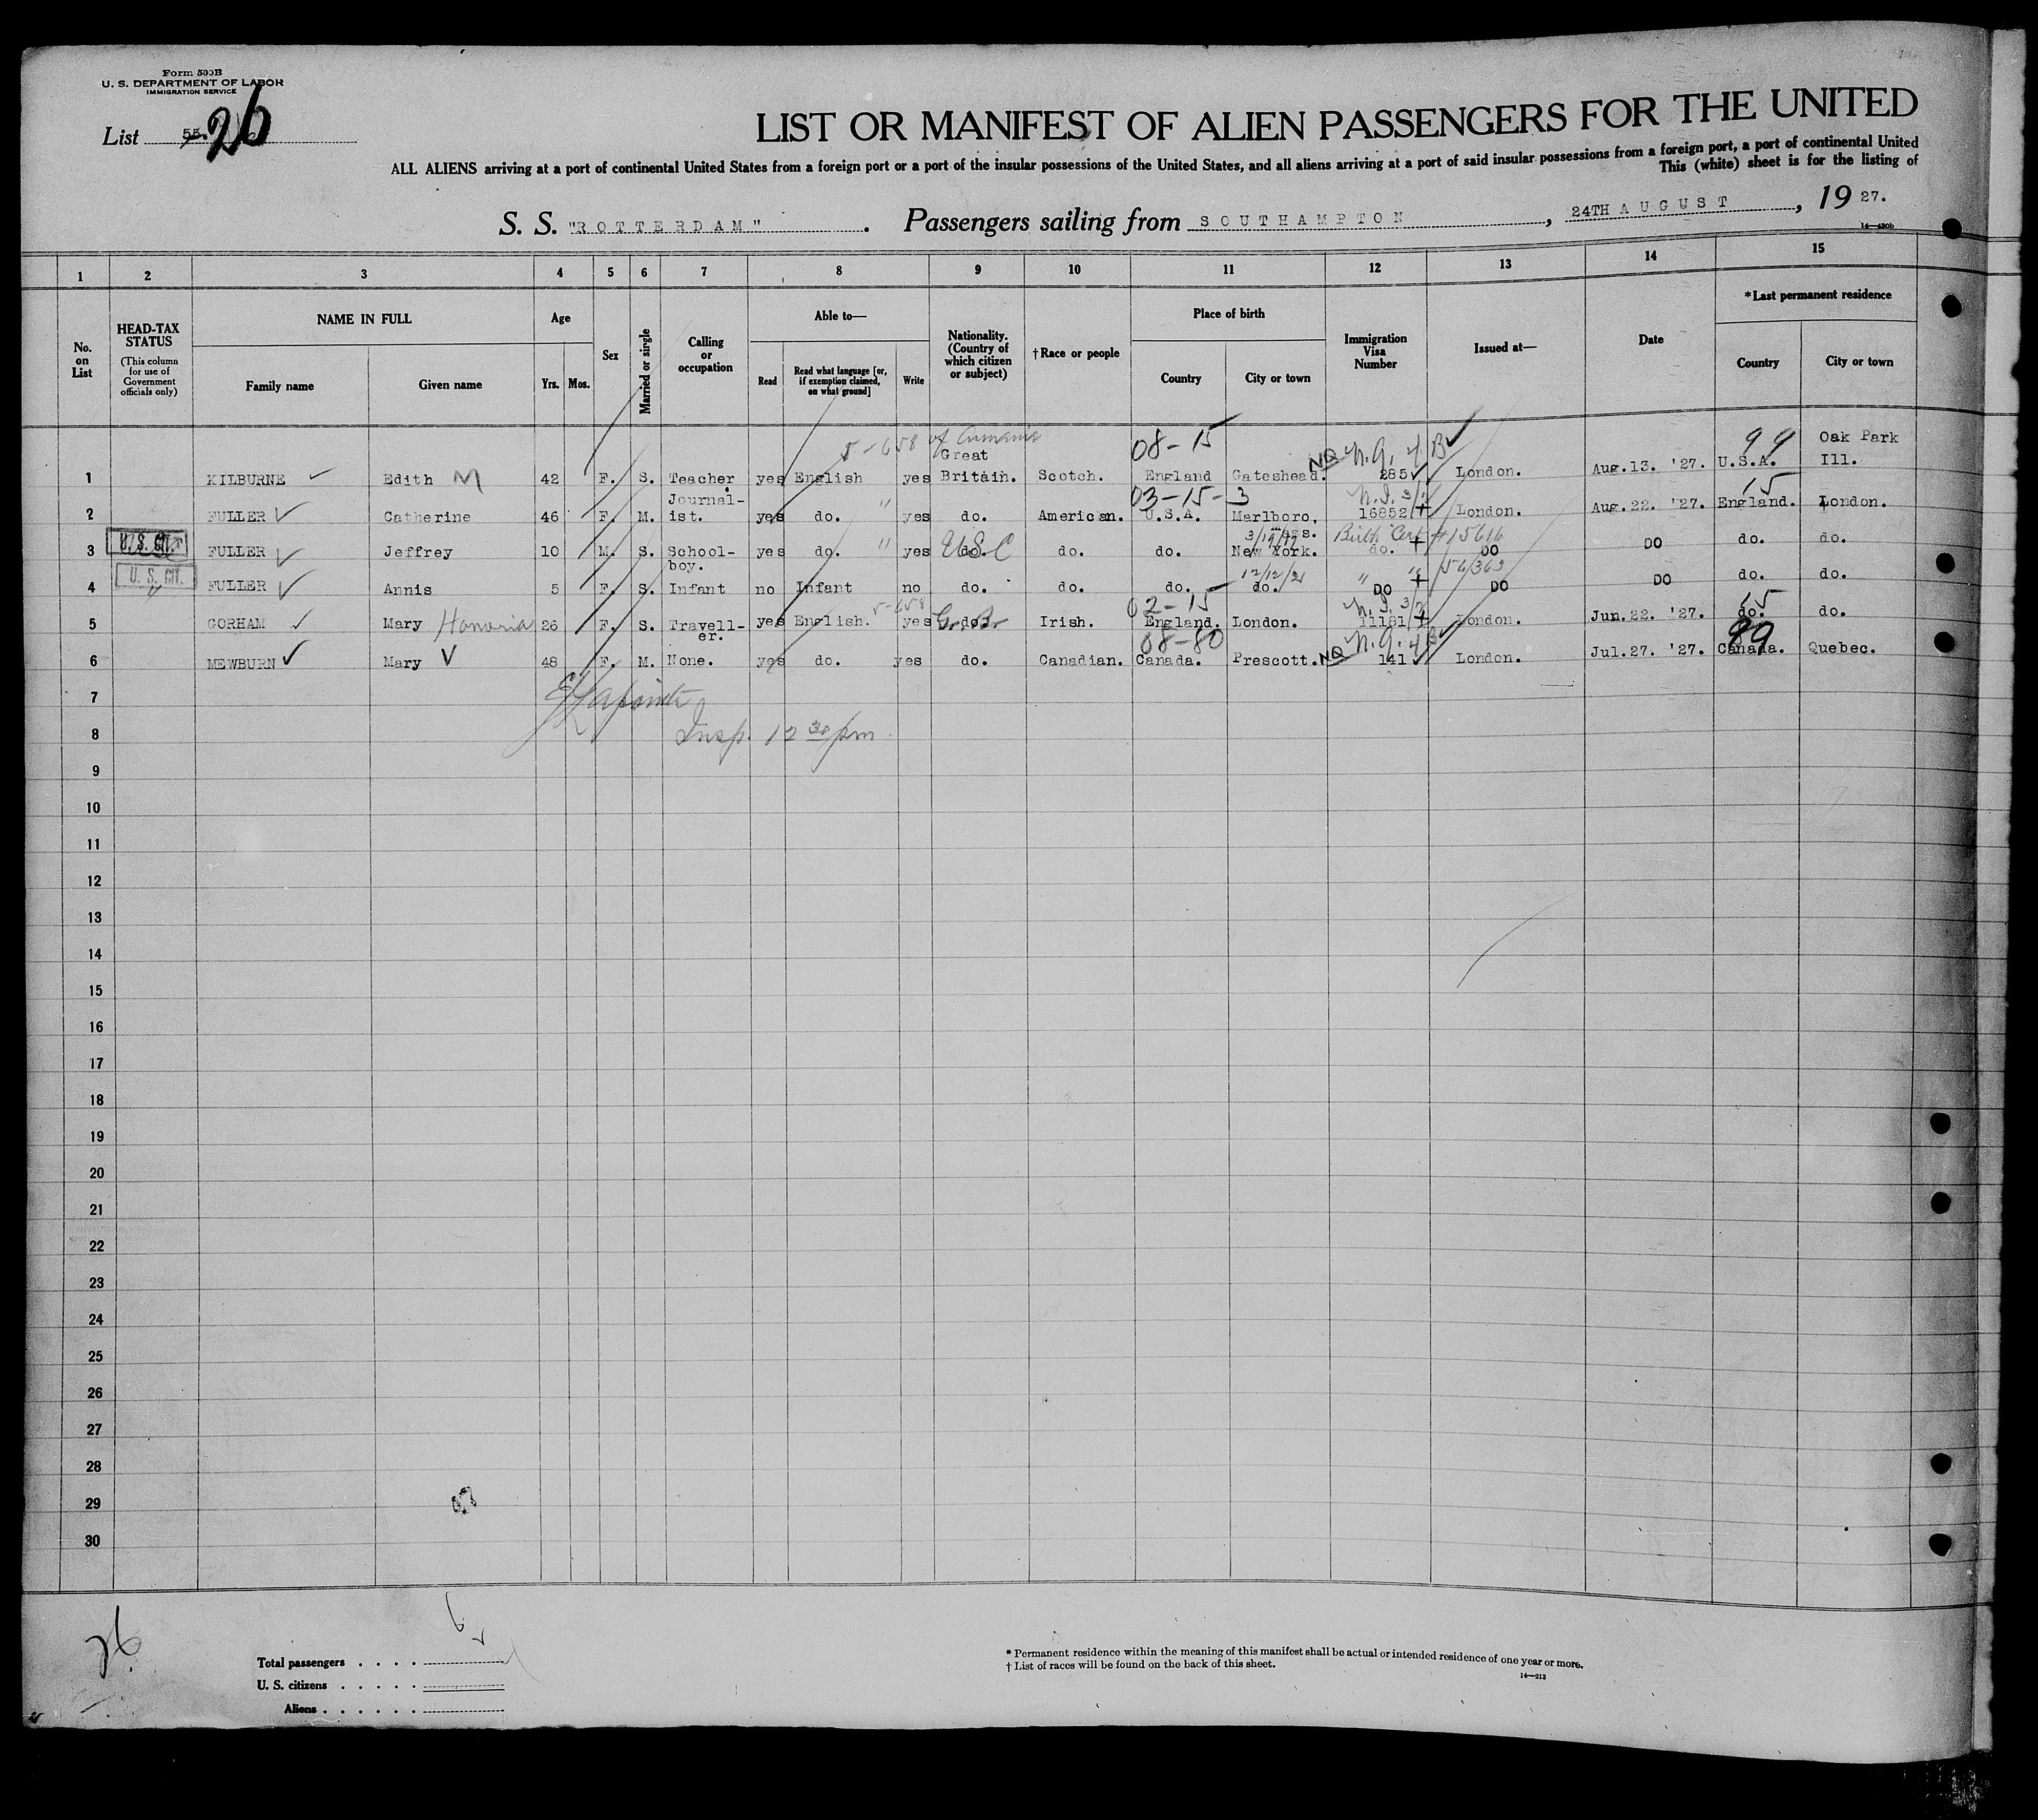 Form 500B
U. S. DEPARTMENT OF LABOR
IMMIGRATION SERVICE
List 55. 26
LIST OR MANIFEST OF ALIEN PASSENGERS FOR THE UNITED
ALL ALIENS arriving at a port of continental United States from a foreign port or a port of the insular possessions of the United States, and all aliens arriving at a port of said insular possessions from a foreign port, a port of continental United
This (white) sheet is for the listing of
S. S. "ROTTERDAM". Passengers sailing from SOUTHAMPTON, 24TH AUGUST, 1927.
14—430b
1 2 3 4 5 6 7 8 9 10 11 12 13 14 15
No. on List
HEAD-TAX STATUS (This column for use of Government officials only)
NAME IN FULL
Family name Given name
Age
Yrs. Mos.
Sex
Married or single
Calling or occupation
Able to—
Read Read what language [or, if exemption claimed, on what ground] Write
Nationality. (Country of which citizen or subject)
†Race or people
Place of birth
Country City or town
Immigration Visa Number
Issued at—
Date
*Last permanent residence
Country City or town
5-658 08-15 N.Q. 4 B 99 Oak Park
1 KILBURNE Edith M 42 F. S. Teacher yes English yes Great Britain. Scotch. England Gateshead. NQ 285 London. Aug.13. '27. U.S.A. Ill.
03-15-3 N.I. 3/ 15
2 FULLER Catherine 46 F. M. Journalist. yes do. " yes do. American. U.S.A. Marlboro, Mass. 16852 London. Aug.22. '27. England. London.
3/19/17 Birth Cert #15616
3 U.S. CIT. FULLER Jeffrey 10 M. S. School-boy. yes do. " yes do. U.S.C do. do. New York. do. DO DO do. do.
12/12/21 " " 56363
4 U.S. CIT. " FULLER Annis 5 F. S. Infant no Infant no do. do. do. do. DO DO DO do. do.
5-658 02-15 N.I. 3/ 15
5 GORHAM Mary Honoria 26 F. S. Traveller. yes English. yes do. Gr. Br. Irish. England. London. 11181 London. Jun.22. '27. do. do.
08-80 N.Q. 4 B 99
6 MEWBURN Mary V 48 F. M. None. yes do. yes do. Canadian. Canada. Prescott. NQ 141 London. Jul.27. '27. Canada. Quebec.
7 Lapointe
8 Insp. 12 30 pm
9
10
11
12
13
14
15
16
17
18
19
20
21
22
23
24
25
26
27
28
29
30
26
6
Total passengers
U. S. citizens
Aliens
* Permanent residence within the meaning of this manifest shall be actual or intended residence of one year or more.
† List of races will be found on the back of this sheet.
14—213